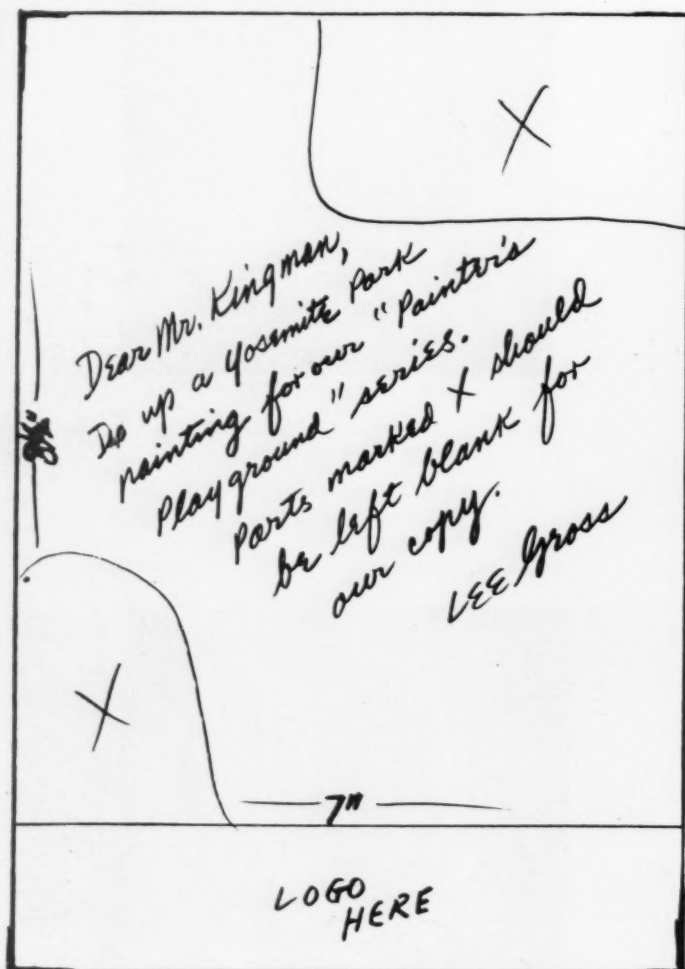 X
Dear Mr. Kingman,
Do up a Yosemite Park
painting for our "Painter's
Playground" series.
Parts marked X should
be left blank for
our copy.
LEE Gross
X
7"
LOGO
HERE